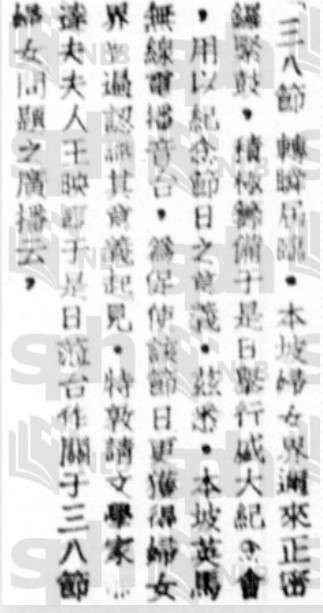 「三八節」轉瞬屆臨。本坡婦女界邇來正密
鑼緊鼓，積極籌備于是日舉行盛大紀念會
，用以紀念節日之意義。茲悉。本坡英馬
無線電播音台，為促使該節日更獲得婦女
界普遍認識其意義起見。特敦請文學家郁
達夫夫人王映霞于是日蒞台作關于三八節
婦女問題之廣播云，